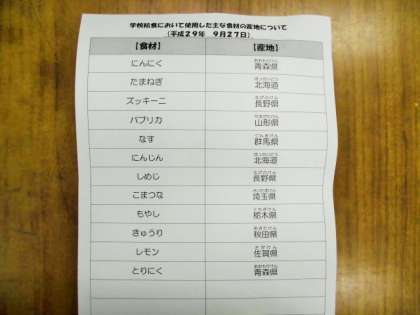 学校給食において使用した主な食材の産地について
（平成２９年　９月２７日）
【食材】　【産地】
にんにく　青森県
たまねぎ　北海道
ズッキーニ　長野県
パプリカ　山形県
なす　群馬県
にんじん　北海道
しめじ　長野県
こまつな　埼玉県
もやし　栃木県
きゅうり　秋田県
レモン　佐賀県
とりにく　青森県